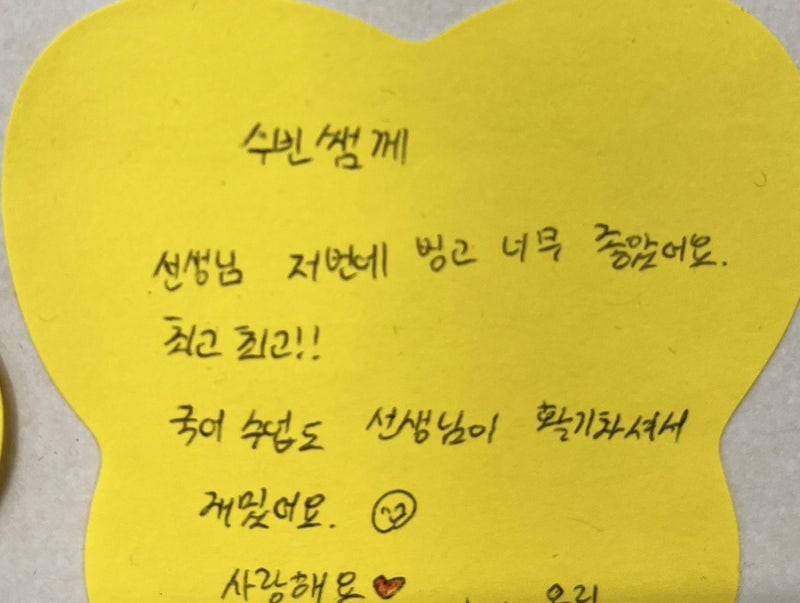 수빈쌤께
선생님 저번에 빙고 너무 좋았어요.
최고 최고!!
국어 수업도 선생님이 활기차셔서
재밌어요.
사랑해요
우리